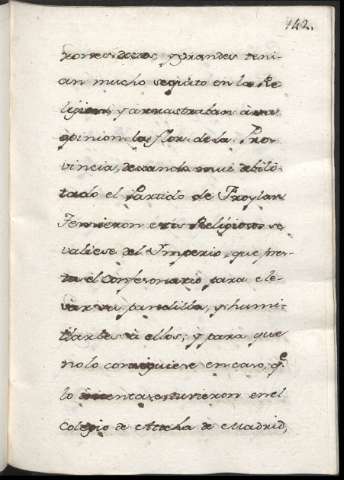 142.
hombres doctos, y grandes tení-
an mucho sequito en la Re-
ligion, y arrastraban à su
opinion la flor de la Pro-
vincia, dexando mui debili-
tado el Partido de Froylan
Temieron estos Religiosos se
valiese del Ymperio, que pres-
ta el Confesonario para ele-
var su pandilla, y humi-
llarlos à ellos; y para que
no lo consiguiese en caso, qe
lo intentase, tuvieron en el
Colegio de Atocha de Madrid,